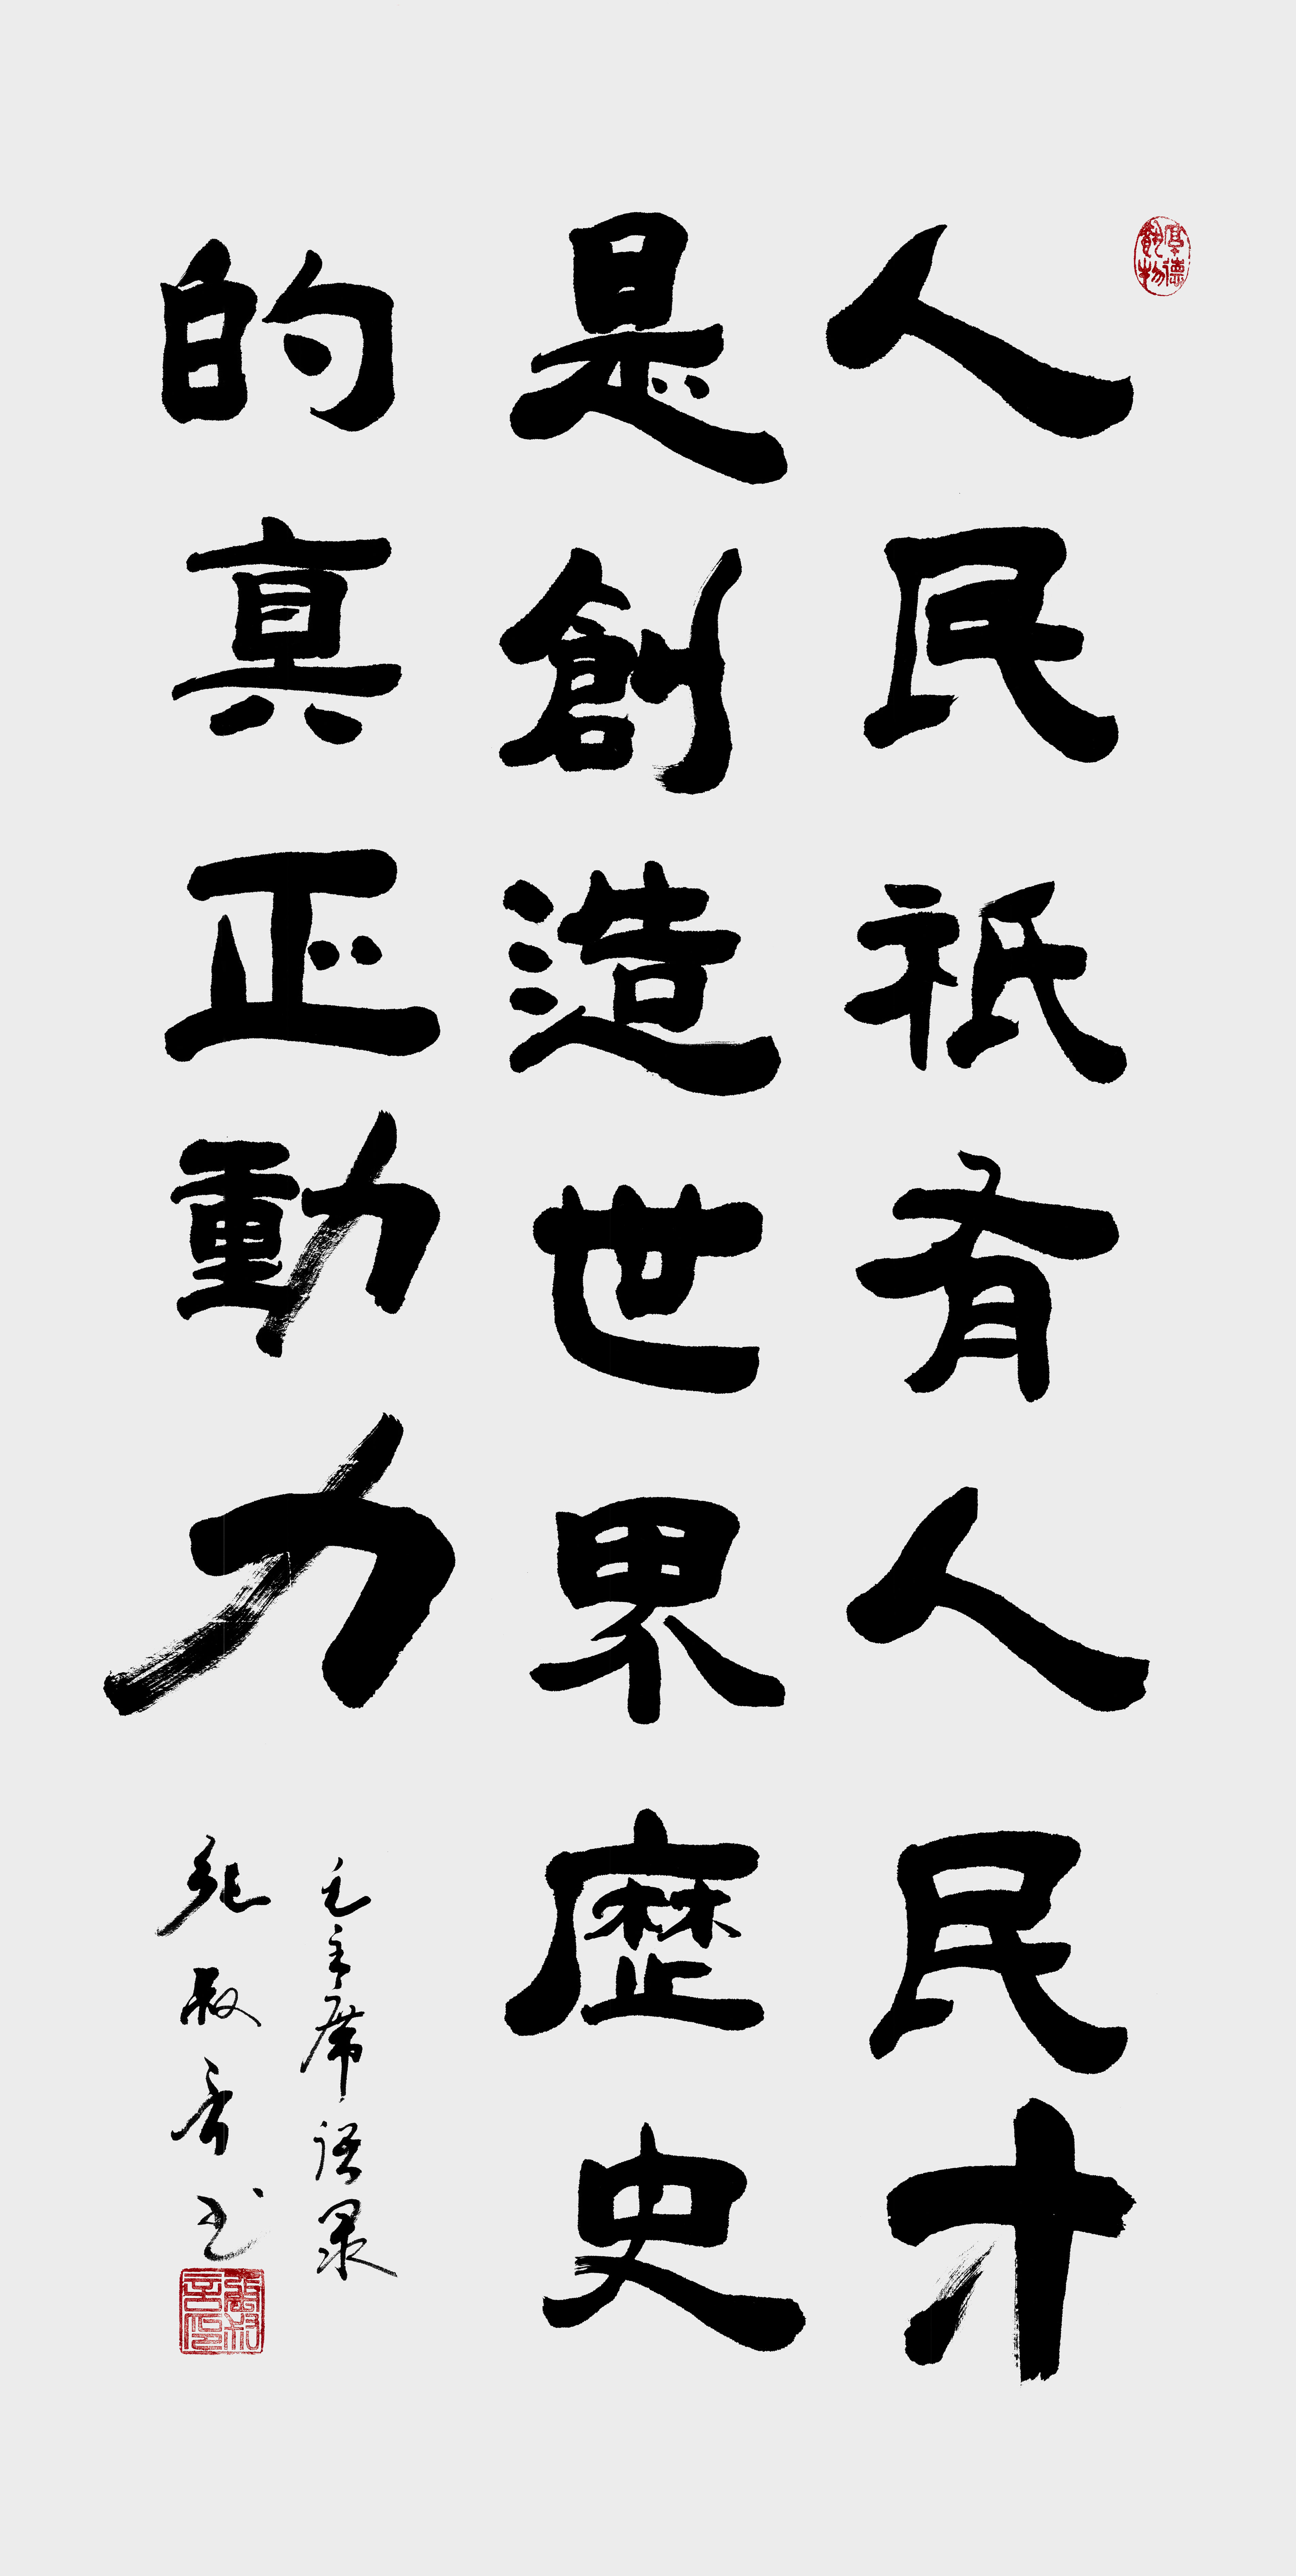 人民祇有人民才
是創造世界歷史
的真正動力
毛主席语录
张叔言书
厚德載物